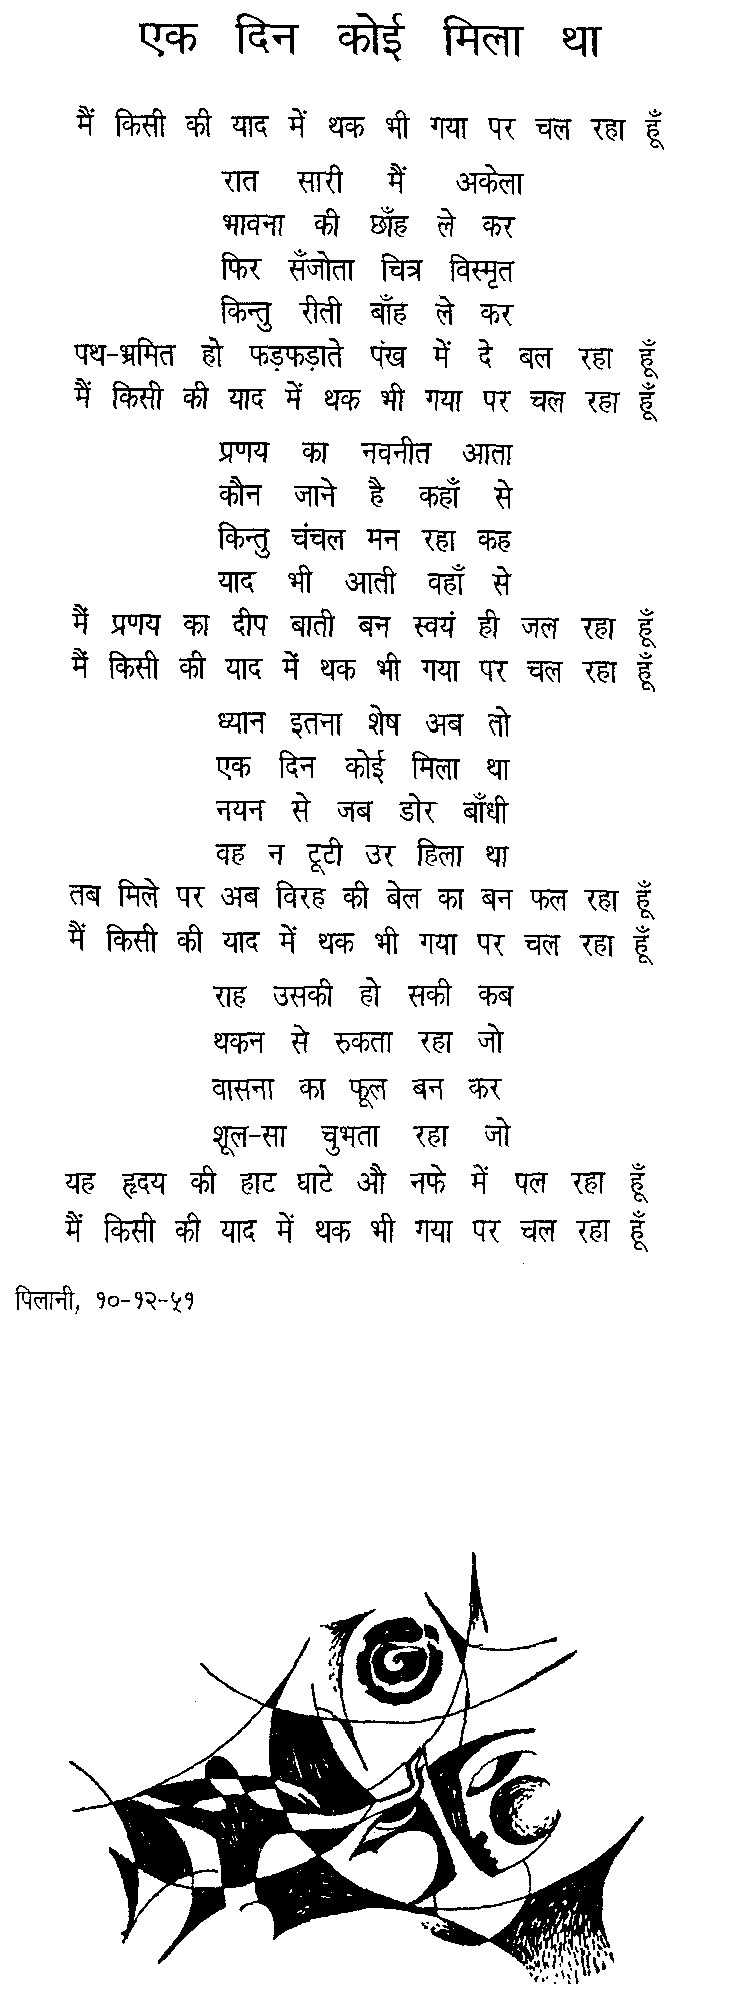 एक दिन कोई मिला था
मैं किसी की याद में थक भी गया पर चल रहा हूँ
रात सारी मैं अकेला
भावना की छाँह ले कर
फिर सँजोता चित्र विस्मृत
किन्तु रीती बाँह ले कर
पथ-भ्रमित हो फड़फड़ाते पंख में दे बल रहा हूँ
मैं किसी की याद में थक भी गया पर चल रहा हूँ
प्रणय का नवनीत आता
कौन जाने है कहाँ से
किन्तु चंचल मन रहा कह
याद भी आती वहाँ से
मैं प्रणय का दीप बाती बन स्वयं ही जल रहा हूँ
मैं किसी की याद में थक भी गया पर चल रहा हूँ
ध्यान इतना शेष अब तो
एक दिन कोई मिला था
नयन से जब डोर बाँधी
वह न टूटी उर हिला था
तब मिले पर अब विरह की बेल का बन फल रहा हूँ
मैं किसी की याद में थक भी गया पर चल रहा हूँ
राह उसकी हो सकी कब
थकन से रुकता रहा जो
वासना का फूल बन कर
शूल-सा चुभता रहा जो
यह हृदय की हाट घाटे औ नफे में पल रहा हूँ
मैं किसी की याद में थक भी गया पर चल रहा हूँ
पिलानी, १०-१२-५१